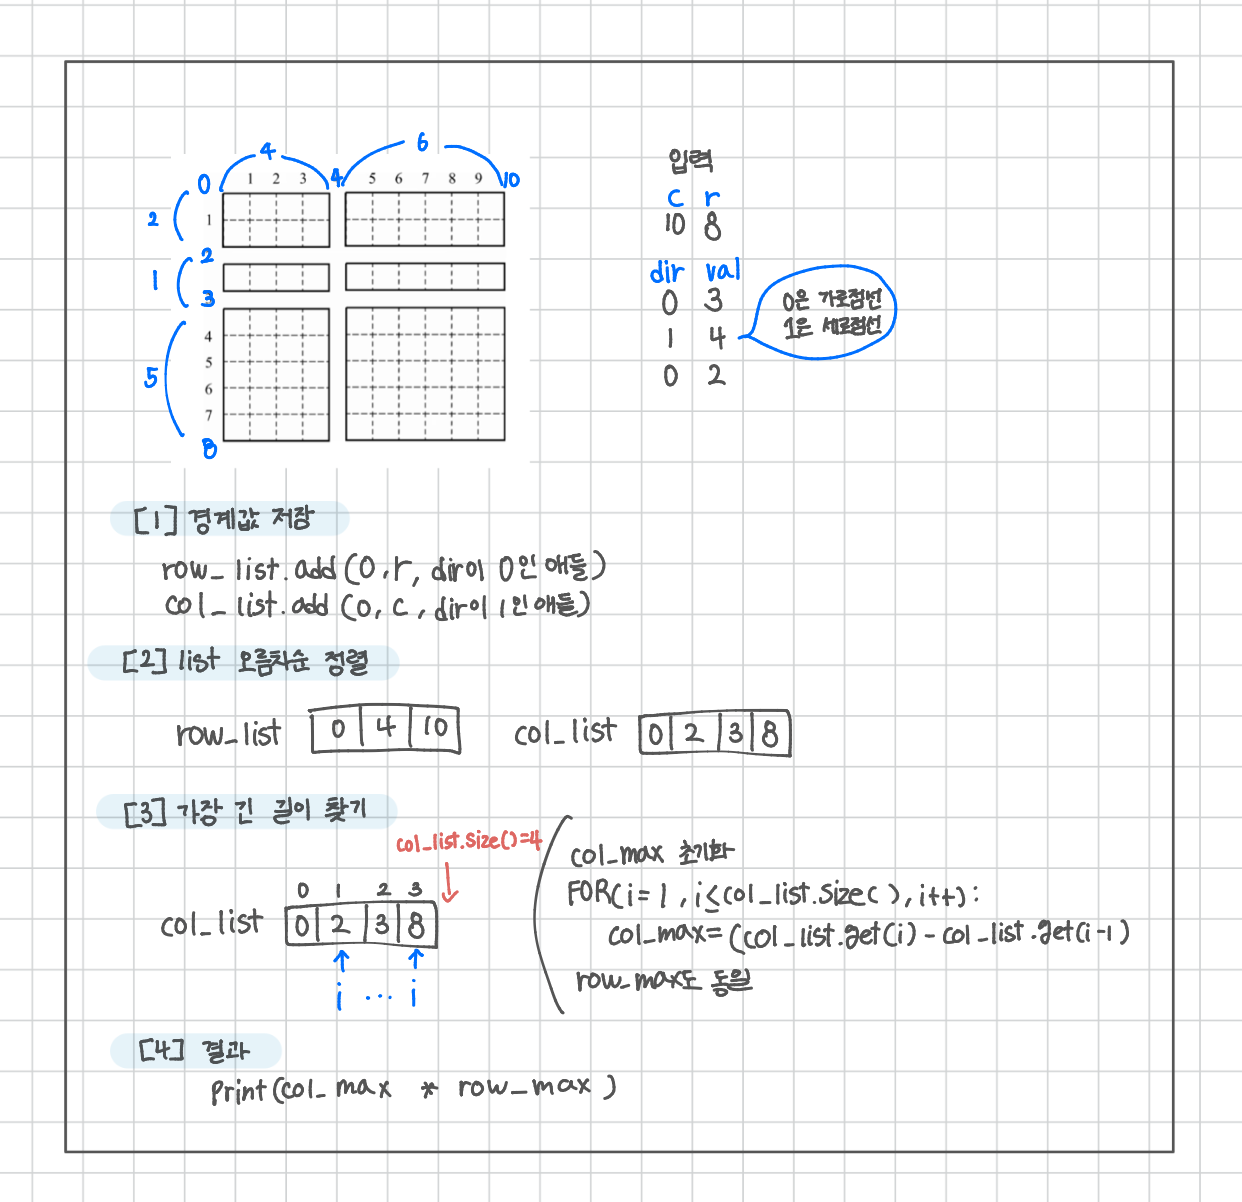 4 6
0 1 2 3 4 5 6 7 8 9 10
2 1
2
1
3
4
5
5 6
7
8
입력
c r
10 8
dir val
0 3
1 4
0 2
0은 가로점선
1은 세로점선
[1] 경계값 저장
row_list.add(0,r, dir이 0인 애들)
col_list.add(0, c, dir이 1인 애들)
[2] list 오름차순 정렬
row_list 0 4 10 col_list 0 2 3 8
[3] 가장 긴 길이 찾기
col_list.size()=4
0 1 2 3
col_list 0 2 3 8
i ... i
col_max 초기화
FOR(i=1, i≤col_list.size(), i++):
col_max=(col_list.get(i)-col_list.get(i-1)
row_max도 동일
[4] 결과
Print(col_max * row_max)